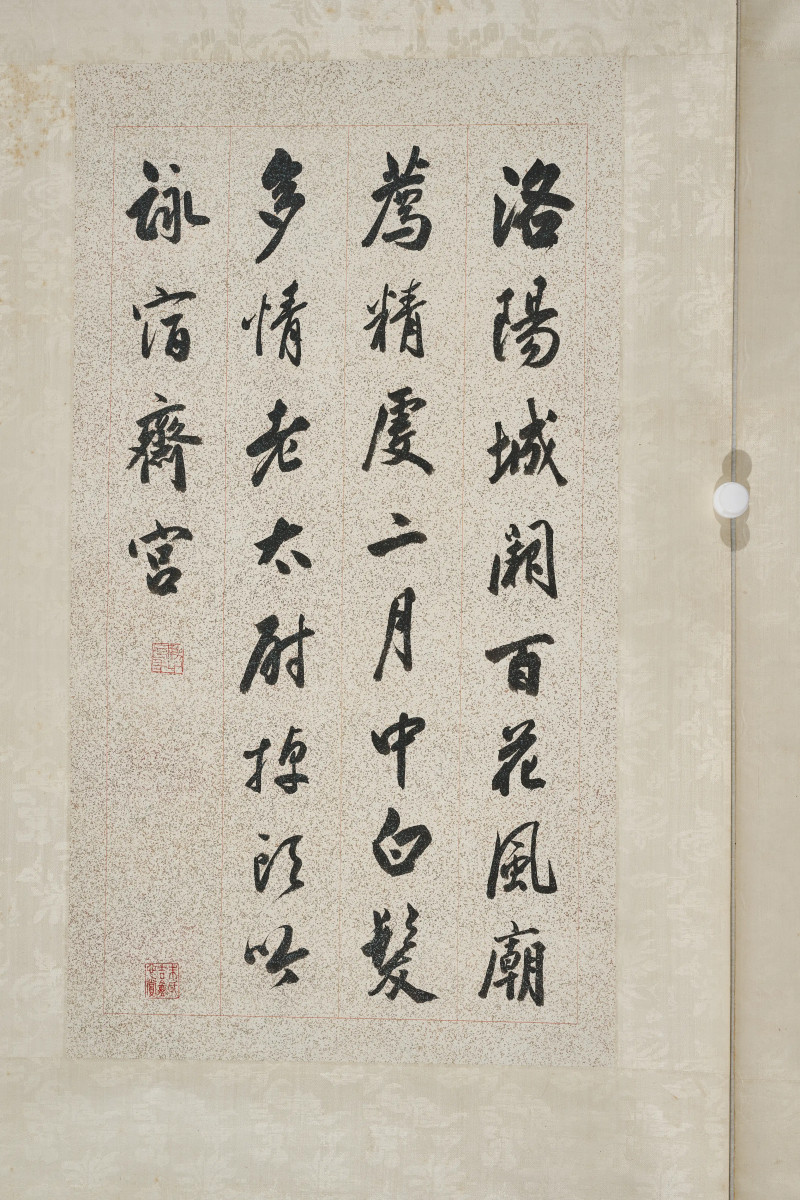 洛陽城闕百花風廟
薦精虔二月中白髮
多情老太尉掉頭吟
詠宿齋宮